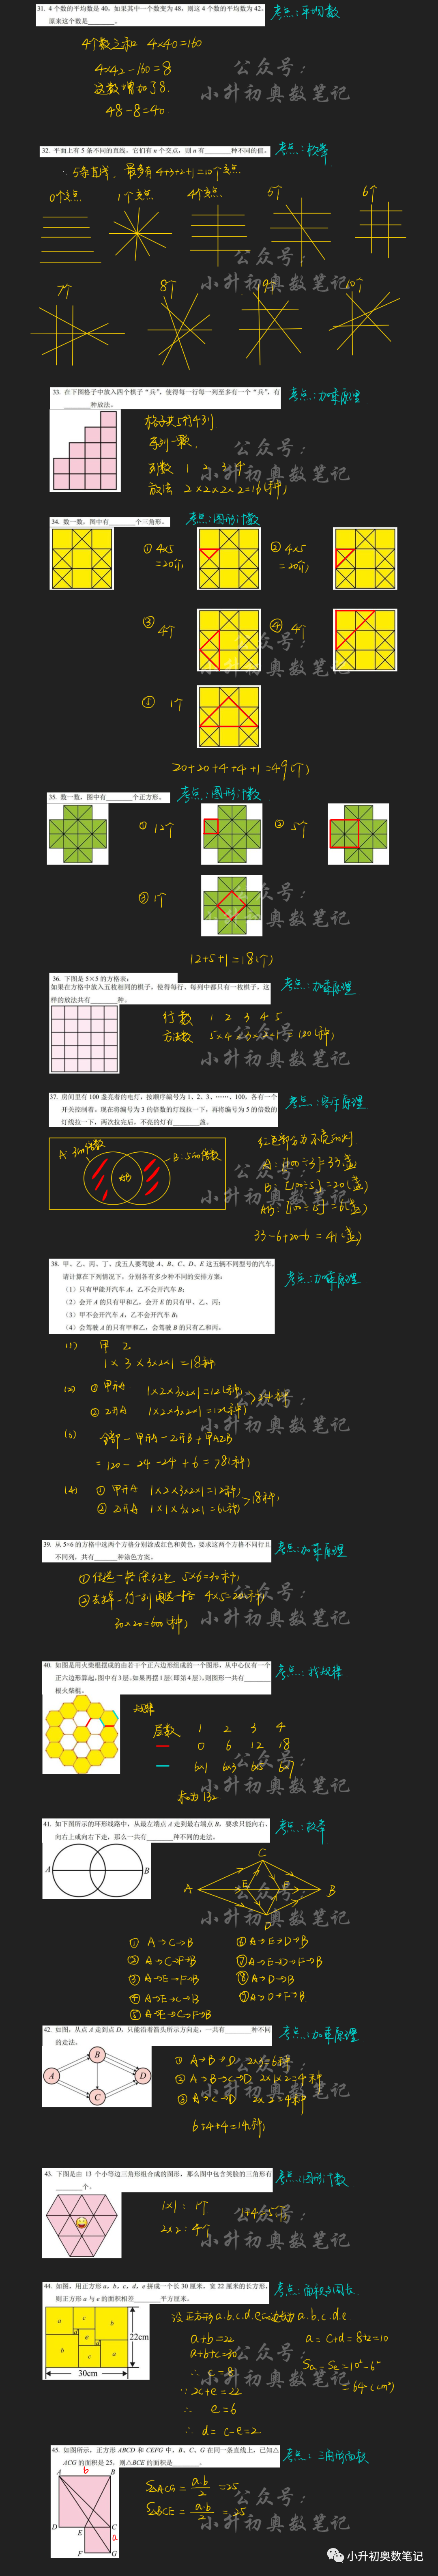 31. 4 个数的平均数是 40，如果其中一个数变为 48，则这 4 个数的平均数为 42。
原来这个数是________。
考点：平均数
4个数之和 4×40=160
4×42-160=8
这数增加了8.
48-8=40.
公众号：
小升初奥数笔记
32. 平面上有 5 条不同的直线，它们有 n 个交点，则 n 有________种不同的值。
考点：枚举
∵5条直线，最多有4+3+2+1=10个交点
0个交点 1个交点 4个交点 5个 6个
公众号：
小升初奥数笔记
7个 8个 9个 10个
33. 在下图格子中放入四个棋子“兵”，使得每一行每一列至多有一个“兵”，有
________种放法。
考点：加乘原理
格子共5行4列
每列一颗.
列数 1 2 3 4
放法 2×2×2×2=16(种)
公众号：
小升初奥数笔记
34. 数一数，图中有________个三角形。
考点：图形计数
① 4×5
=20个
② 4×5
=20个
③ 4个
④ 4个
公众号：
小升初奥数笔记
⑤ 1个
20+20+4+4+1=49(个)
35. 数一数，图中有________个正方形。
考点：图形计数
① 12个
② 5个
③ 1个
公众号：
小升初奥数笔记
12+5+1=18(个)
36. 下图是 5×5 的方格表：
如果在方格中放入五枚相同的棋子，使得每行、每列中都只有一枚棋子，这
样的放法共有________种。
考点：加乘原理
行数 1 2 3 4 5
方法数 5×4×3×2×1=120(种)
公众号：
小升初奥数笔记
37. 房间里有 100 盏亮着的电灯，按顺序编号为 1、2、3、……、100，各有一个
开关控制着。现在将编号为 3 的倍数的灯线拉一下，再将编号为 5 的倍数的
灯线拉一下，两次拉完后，不亮的灯有________盏。
考点：容斥原理
A：3的倍数
B：5的倍数
AB
红色部分为不亮的灯
A：[100÷3]=33(盏)
B：[100÷5]=20(盏)
AB：[100÷15]=6(盏)
33-6+20-6=41(盏)
公众号：
小升初奥数笔记
38. 甲、乙、丙、丁、戊五人要驾驶 A、B、C、D、E 这五辆不同型号的汽车。
请计算在下列情况下，分别各有多少种不同的安排方案：
（1）只有甲能开汽车 A，乙不会开汽车 B；
（2）会开 A 的只有甲和乙，会开 E 的只有甲、乙、丙；
（3）甲不会开汽车 A，乙不会开汽车 B；
（4）会驾驶 A 的只有甲和乙，会驾驶 B 的只有乙和丙。
考点：加乘原理
(1) 甲 乙
1×3×3×2×1=18种
(2) ① 甲开A 1×2×3×2×1=12(种)
② 乙开A 1×2×3×2×1=12(种)
公众号：
小升初奥数笔记
(3) 全部-甲开A-乙开B+甲A乙B
=120-24-24+6=78(种)
(4) ① 甲开A 1×2×3×2×1=12(种)
② 乙开A 1×1×3×2×1=6(种)
18(种)
39. 从 5×6 的方格中选两个方格分别涂成红色和黄色，要求这两个方格不同行且
不同列，共有________种涂色方案。
考点：加乘原理
① 任选一格涂红色 5×6=30(种)
② 去掉一行一列再选一格 4×5=20(种)
30×20=600(种)
公众号：
小升初奥数笔记
40. 如图是用火柴棍摆成的由若干个正六边形组成的一个图形，从中心仅有一个
正六边形算起，图中有3层，如果再摆1层（即第4层），则图形一共有________
根火柴棍。
考点：找规律
规律
层数 1 2 3 4
0 6 12 18
6×1 6×3 6×5 6×7
共为132
公众号：
小升初奥数笔记
41. 如下图所示的环形线路中，从最左端点 A 走到最右端点 B，要求只能向右、
向右上或向右下走，那么一共有________种不同的走法。
考点：枚举
A B
C
A E F B
D
公众号：
小升初奥数笔记
① A→C→B
② A→C→F→B
③ A→E→F→B
④ A→E→C→B
⑤ A→E→C→F→B
⑥ A→E→D→B
⑦ A→E→D→F→B
⑧ A→D→B
⑨ A→D→F→B
42. 如图，从点 A 走到点 D，只能沿着箭头所示方向走，一共有________种不同
的走法。
考点：加乘原理
A B C D
① A→B→D 2×3=6种
② A→B→C→D 2×1×2=4种
③ A→C→D 2×2=4种
6+4+4=14(种)
公众号：
小升初奥数笔记
43. 下图是由 13 个小等边三角形组合成的图形，那么图中包含笑脸的三角形有
________个。
考点：图形计数
1×1：1个
2×2：4个
公众号：
小升初奥数笔记
44. 如图，用正方形 a，b，c，d，e 拼成一个长 30 厘米，宽 22 厘米的长方形，
则正方形 a 与 e 的面积相差________平方厘米。
考点：面积与周长
a c b
e
b c a
22cm
30cm
设正方形a.b.c.d.e的边长为a.b.c.d.e
a+b=22
a+b+c=30
∴ c=8
∵2c+e=22
∴ e=6
∴ d=c-e=2
a=c+d=8+2=10
Sa-Se=10²-6²
=64(cm²)
公众号：
小升初奥数笔记
45. 如图所示，正方形 ABCD 和 CEFG 中，B、C、G 在同一条直线上，已知△
ACG 的面积是 25，则△BCE 的面积是________。
考点：三角形面积
b
A B
D E C
a
F G
S△ACG=a·b/2=25
S△BCE=a·b/2=25
公众号：
小升初奥数笔记
小升初奥数笔记